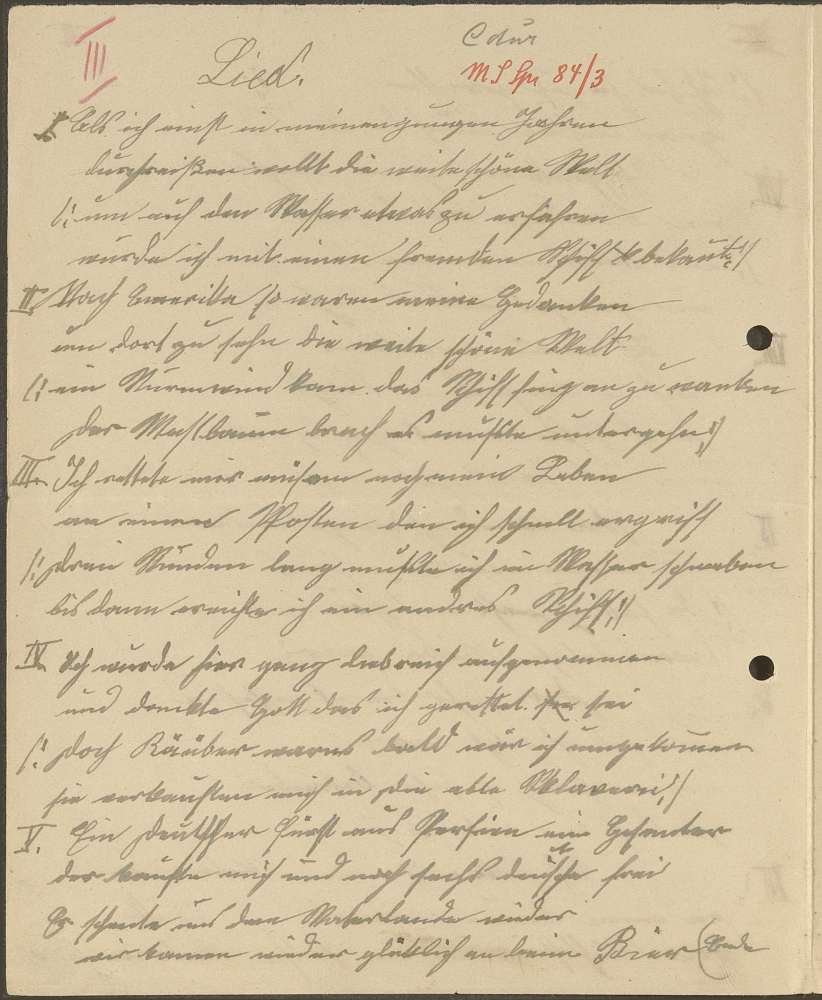 III
C dur
Lied.
MS Spr 84/3
I. Als ich einst in meinen jungen Jahren
durchreißen wollt die weite schöne Welt
/: um auf den Wasser etwas zu erfahren
wurde ich mit einen fremden Schiff bekant :/
II. Nach Amerika so waren meine Gedanken
um dort zu sehn die weite schöne Welt
/: ein Sturmwind kam das Schiff fing an zu wanken
der Mastbaum brach es mußte untergehn :/
III. Ich rettete mir mühsam noch mein Leben
an einen Pfosten den ich schnell ergriff
/: drei Stunden lang mußte ich im Wasser schweben
bis dann ereichte ich ein andres Schiff :/
IV. Ich wurde hier ganz liebreich aufgenommen
und dankte Gott das ich gerettet sei
/: doch Räuber warens bald wär ich umgekommen
sie verkauften mich in die Sklaverei :/
V. Ein deutscher Fürst aus Persien ein Gesanter
der kaufte mich und noch sechs deutsche frei
Er schenkte uns den Vaterlande wieder
wir kamen wieder glüklich an beim Bier (Ende